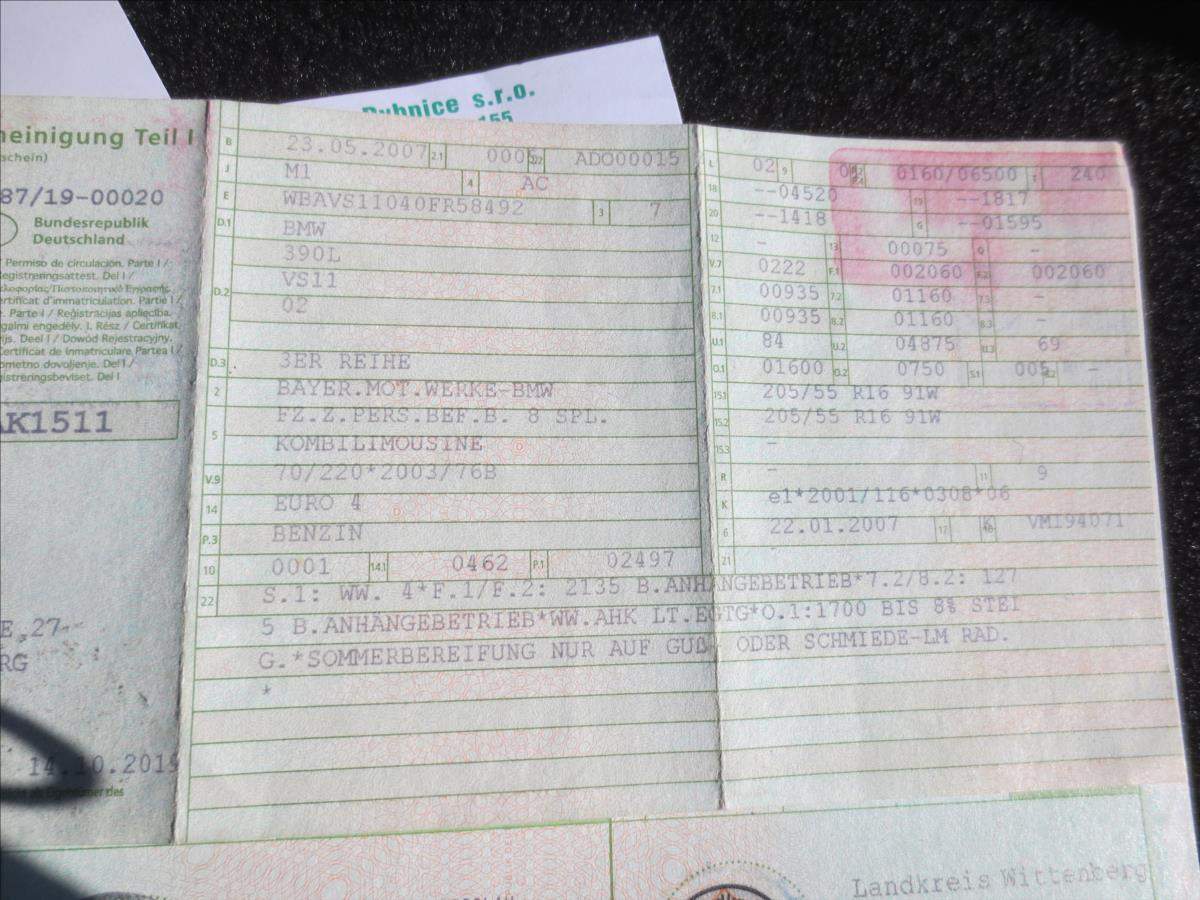 Dubnice s.r.o.
155
heinigung Teil I
schein)
87/19-00020
Bundesrepublik
Deutschland
Permiso de circulación. Parte I /
egistreringsattest. Del I /
ertificat d'immatriculation. Partie I /
. Parte I / Reģistrācijas apliecība.
galmi engedély. I. Rész / Certifikat
ijs. Deel I / Dowód Rejestracyjny.
Certificat de inmatriculare. Partea I /
ometno dovoljenje. Del I /
istreringsbeviset. Del I
AK1511
E 27
RG
14.10.2019
B 23.05.2007 2.1 0005 2.2 ADO00015
J M1 4 AC
E WBAVS11040FR58492 3 7
D.1 BMW
390L
D.2 VS11
02
D.3 3ER REIHE
2 BAYER.MOT.WERKE-BMW
FZ.Z.PERS.BEF.B. 8 SPL.
5 KOMBILIMOUSINE
V.9 70/220*2003/76B
14 EURO 4
P.3 BENZIN
10 0001 14.1 0462 P.1 02497
L 02 9 0160/06500 T 240
18 --04520 19 --1817
20 --1418 G --01595
12 - 13 00075 Q -
V.7 0222 F.1 002060 F.2 002060
7.1 00935 7.2 01160 7.3 -
8.1 00935 8.2 01160 8.3 -
U.1 84 U.2 04875 U.3 69
O.1 01600 O.2 0750 S.1 005 S.2 -
15.1 205/55 R16 91W
15.2 205/55 R16 91W
15.3 -
R - 11 9
K e1*2001/116*0308*06
6 22.01.2007 17 K 16 VM194071
21
22 S.1: WW. 4*F.1/F.2: 2135 B.ANHÄNGEBETRIEB*7.2/8.2: 127
5 B.ANHÄNGEBETRIEB*WW.AHK LT.EGTG*O.1:1700 BIS 8% STEI
G.*SOMMERBEREIFUNG NUR AUF GUß- ODER SCHMIEDE-LM RAD.
*
Landkreis Wittenberg